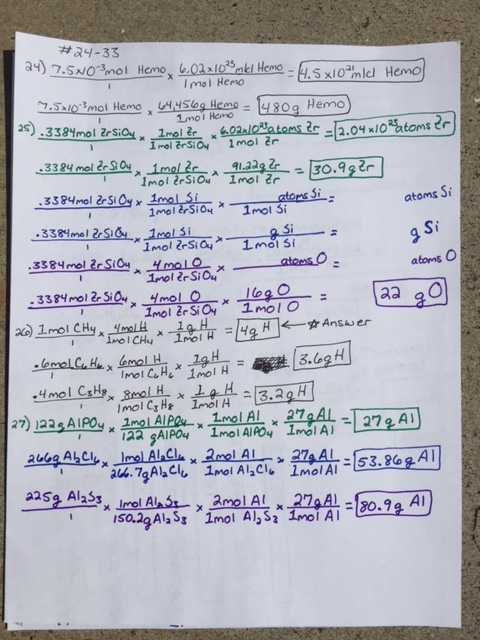 #24-33
24) 7.5x10⁻³mol Hemo/1 x 6.02x10²³mlcl Hemo/1mol Hemo = 4.5x10²¹mlcl Hemo
7.5x10⁻³mol Hemo/1 x 64,456g Hemo/1mol Hemo = 480g Hemo
25) .3384mol ZrSiO₄/1 x 1mol Zr/1mol ZrSiO₄ x 6.02x10²³atoms Zr/1mol Zr = 2.04x10²³atoms Zr
.3384mol ZrSiO₄/1 x 1mol Zr/1mol ZrSiO₄ x 91.22gZr/1mol Zr = 30.9gZr
.3384mol ZrSiO₄/1 x 1mol Si/1mol ZrSiO₄ x atoms Si/1mol Si = atoms Si
.3384mol ZrSiO₄/1 x 1mol Si/1mol ZrSiO₄ x g Si/1mol Si = g Si
.3384mol ZrSiO₄/1 x 4mol O/1mol ZrSiO₄ x atoms O = atoms O
.3384mol ZrSiO₄/1 x 4mol O/1mol ZrSiO₄ x 16g O/1mol O = 22 g O
26) 1mol CH₄/1 x 4mol H/1mol CH₄ x 1g H/1mol H = 4g H ← ☆ Answer
.6mol C₆H₆/1 x 6mol H/1mol C₆H₆ x 1gH/1mol H = 3.6gH
.4mol C₃H₈/1 x 8mol H/1mol C₃H₈ x 1g H/1mol H = 3.2gH
27) 122gAlPO₄/1 x 1mol AlPO₄/122 gAlPO₄ x 1mol Al/1mol AlPO₄ x 27gAl/1mol Al = 27gAl
266gAl₂Cl₆/1 x 1mol Al₂Cl₆/266.7gAl₂Cl₆ x 2mol Al/1mol Al₂Cl₆ x 27gAl/1mol Al = 53.86gAl
225g Al₂S₃/1 x 1mol Al₂S₃/150.2gAl₂S₃ x 2mol Al/1mol Al₂S₃ x 27gAl/1mol Al = 80.9g Al